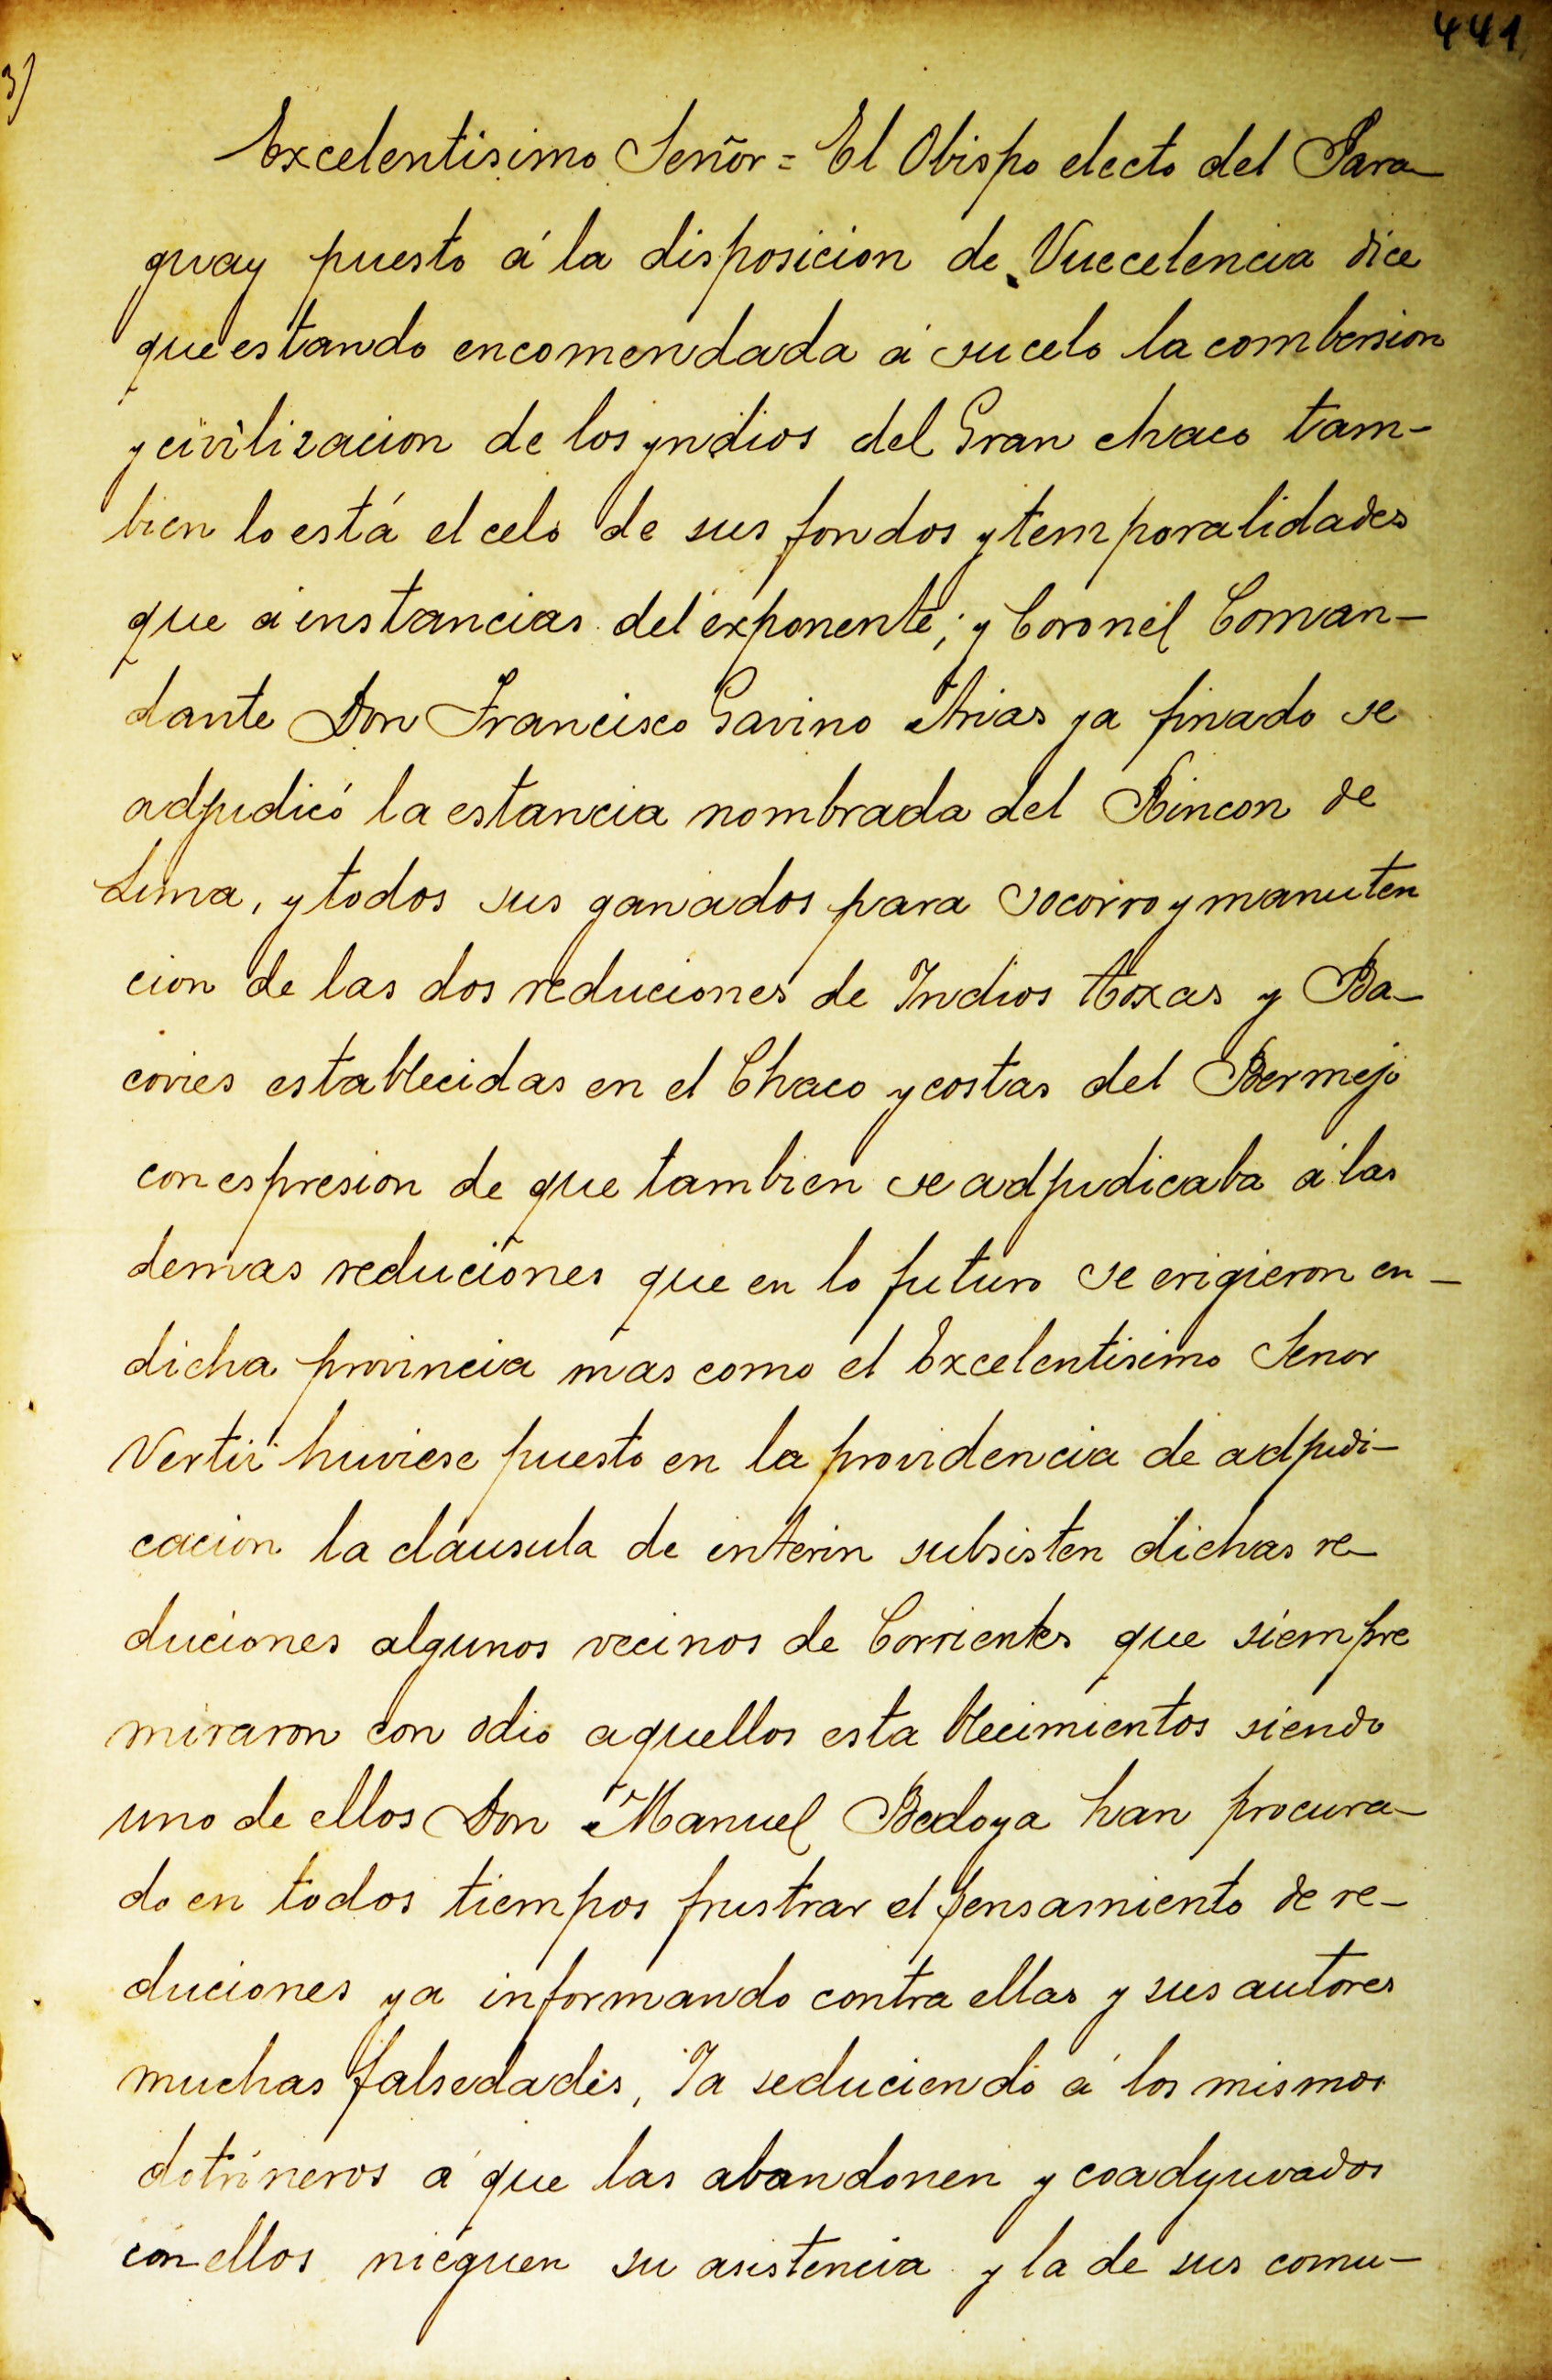 441
3)
Excelentisimo Señor = El Obispo electo del Para-
guay puesto á la disposicion de Vuecelencia dice
que estando encomendada á su celo la combersion
y civilizacion de los yndios del Gran chaco tam-
bien lo está el celo de sus fondos y temporalidades
que a instancias del exponente; y Coronel Coman-
dante Don Francisco Gavino Arias ya finado se
adjudicó la estancia nombrada del Rincon de
Luna, y todos sus ganados para socorro y manuten
cion de las dos reduciones de Indios Toxas y Ba-
covies establecidas en el Chaco y costas del Bermejo
con espresion de que tambien se adjudicaba á las
demas reduciones que en lo futuro se erigieron en-
dicha provincia mas como el Excelentisimo Senor
Vertir huviese puesto en la providencia de adjudi-
cacion la clausula de interin subsisten dichas re-
duciones algunos vecinos de Corrientes que siempre
miraron con odio aquellos establecimientos siendo
uno de ellos Don Manuel Bedoya han procura-
do en todos tiempos frustrar el pensamiento de re-
duciones ya informando contra ellas y sus autores
muchas falsedades, Ya seduciendo á los mismos
dotrineros á que las abandonen y coadyuvados
con ellos nieguen su asistencia y la de sus comu-